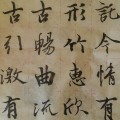 託今情有
形竹惠欣
古暢曲流
古引激有